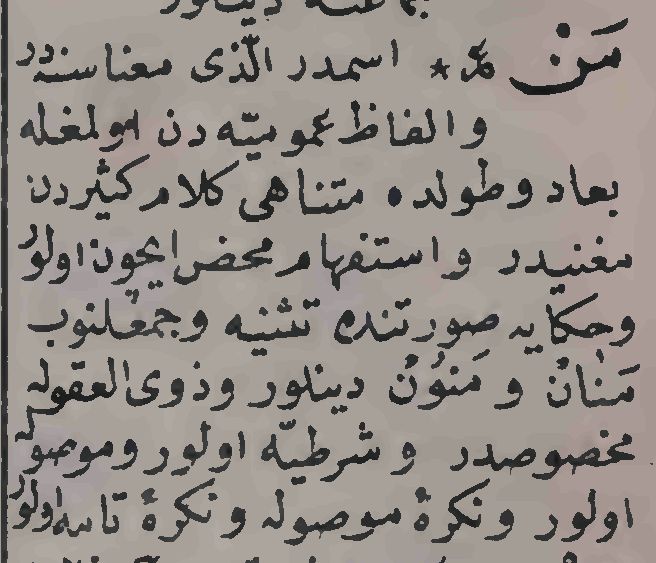 مَنْ ٭ اسمدر الّذى معناسنه‌در
والفاظ عموميّه دن اولمغله
بعاد وطولده متناهى كلام كثيردن
مغنيدر واستفهام محض ايچون اولور
وحكايه صورتنده تثنيه وجمعلنوب
مَنانْ و مَنوُنْ دينلور وذوى العقوله
مخصوصدر و شرطيّه اولور وموصوله
اولور ونكرهٔ موصوله ونكرهٔ تامه اولور